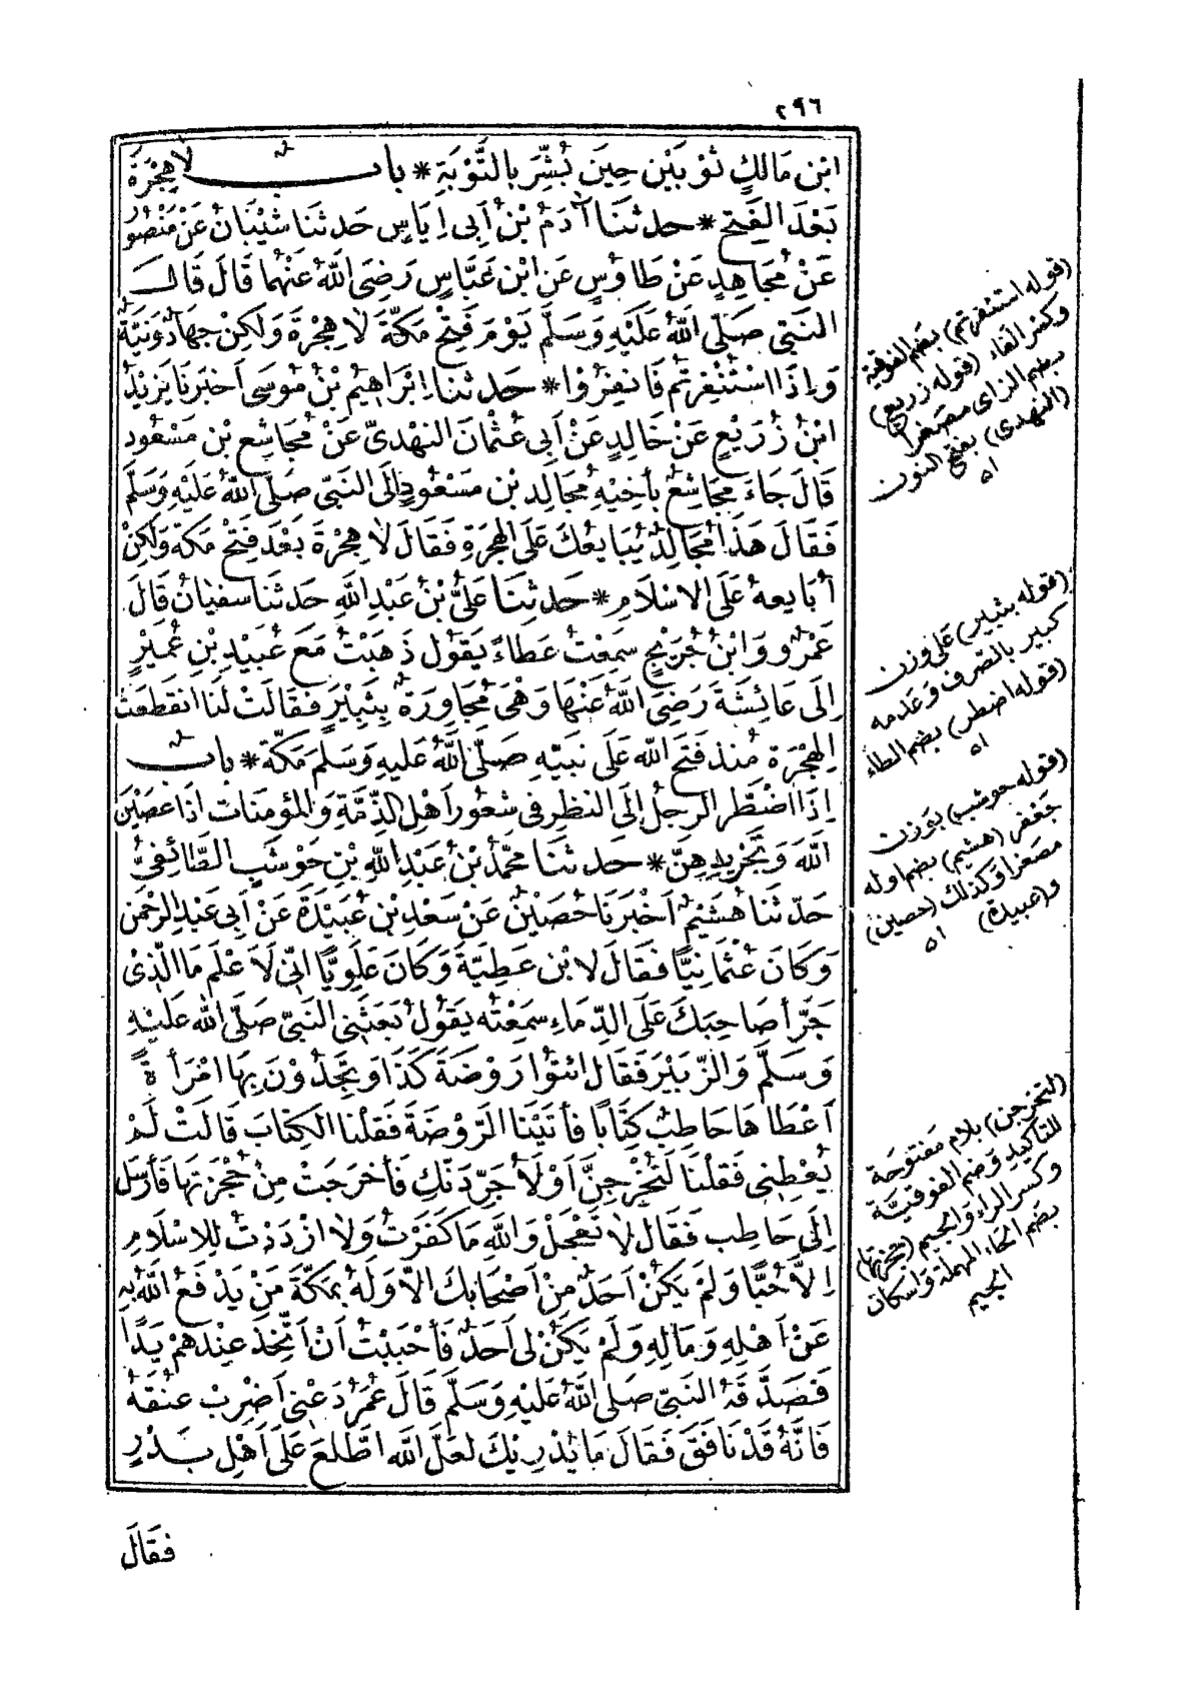 ٢٩٦
ابْنِ مَالِكٍ ثَوْبَيْنِ حِينَ بُشِّرَ بِالتَّوْبَةِ * بَابُ لَا هِجْرَةَ
بَعْدَ الفَتْحِ * حَدثنَا آدَمُ بْنُ أَبِى إِيَاسٍ حَدثنَا شَيْبَانُ عَنْ مَنْصُورٍ
عَنْ مُجَاهِدٍ عَنْ طَاوُسٍ عَنِ ابْنِ عَبَّاسٍ رَضِىَ اللهُ عَنْهُمَا قَالَ قَالَ
النَبِىّ صَلّى اللهُ عَلَيْهِ وَسَلَّمَ يَوْمَ فَتْحِ مَكّةَ لَا هِجْرَةَ وَلكِنْ جِهَادٌ وَنِيَّةٌ
وَإِذَا اسْتُنْفِرْتُمْ فَانْفِرُوا * حَدثنا إِبْرَاهِيمُ بْنُ مُوسَى أَخبَرَنَا يَزِيدُ
ابْنُ زُرَيْعٍ عَنْ خَالِدٍ عَنْ أَبِى عُثْمَانَ النهْدِىّ عَنْ مُجَاشِعِ بْنِ مَسْعُودٍ
قَالَ جَاءَ مُجَاشِعٌ بِأَخِيْهِ مُجَالِدِ بْنِ مَسْعُودٍ إِلَى النَبِىّ صَلَّى اللهُ عَلَيْهِ وَسَلَّمَ
فَقَالَ هَذَا مُجَالِدٌ يُبَايِعُكَ عَلَى الهِجْرَةِ فَقَالَ لَا هِجْرَةَ بَعْدَ فَتْحِ مَكّةَ وَلكِنْ
أُبَايِعهُ عَلَى الاسْلَامِ * حَدثنَا عَلِىُّ بْنُ عَبْدِ اللهِ حَدثنَا سفيَانُ قَالَ
عَمْرٌو وَابْنُ جُرَيْجٍ سَمِعْتُ عَطَاءً يَقُولُ ذَهَبْتُ مَعَ عُبَيْدِ بْنِ عُمَيْرٍ
إِلَى عَائِشَةَ رَضِىَ اللهُ عَنْهَا وَهْىَ مُجَاوِرَةٌ بِثَبِيْرَ فَقَالَتْ لَنَا انْقَطَعَتْ
الهِجْرَةُ مُنذ فَتَحَ اللهُ عَلَى نَبِيّهِ صَلَّى اللهُ عَليهِ وَسَلَّمَ مَكّةَ * بَابُ
إِذَا اضْطَرَّ الرجلُ إِلَى النظرِ فى شعُورِ أَهْلِ الذِّمَّةِ وَالمُؤْمِنَات اذَا عَصَيْنَ
اللهَ وَتَجْرِيدِهِنَّ * حَدثنَا مُحَمَّدُ بْنُ عَبْدِ اللهِ بْنِ حَوْشَبٍ الطَّائِفِىُّ
حَدّثنَا هُشَيْمٌ أَخْبَرَنَا حُصَيْنٌ عَنْ سَعْدِ بْنِ عُبَيْدَةَ عَنْ أَبِى عَبْدِ الرَّحْمٰنِ
وَكَانَ عُثْمَانِيًّا فَقَالَ لابْنِ عَطِيَّةَ وَكَانَ عَلَوِيًّا إِنِّى لَأَعْلَمُ مَا الَّذِى
جَرَّأَ صَاحِبَكَ عَلَى الدِّمَاءِ سَمِعْتُه يَقُولُ بَعَثَنِى النَبِىّ صَلّى الله عَلَيْهِ
وَسَلَّمَ وَالزُّبَيْرَ فَقَالَ ائتُوا رَوْضَةَ كَذَا وَتَجِدُوْنَ بِهَا امْرَأَةً
أَعْطَاهَا حَاطِبٌ كِتَابًا فَأَتَيْنَا الرَّوْضَةَ فَقلْنا الكِتَابَ قَالَتْ لَمْ
يُعْطِنِى فَقُلْنَا لَتُخْرِجِنَّ أَوْ لَأُجَرِّدَنَّكِ فَأَخرَجَتْ مِنْ حُجْزَتِهَا فَأَرْسَلَ
إِلَى حَاطِبٍ فَقَالَ لَا تَعْجَلْ وَاللهِ مَا كَفَرْتُ وَلَا ازْدَدْتُ لِلإسْلَامِ
إِلَّا حُبًّا وَلَمْ يَكُنْ أَحَدٌ مِنْ أَصْحَابِكَ الَّا وَلَهُ بِمَكّةَ مَنْ يَدْفَعُ اللهُ بِهِ
عَنْ أَهْلِهِ وَمَالِهِ وَلَمْ يَكُنْ لِى أَحَدٌ فَأَحْبَبْتُ أَنْ أَتَّخِذَ عِنْدَهُمْ يَدًا
فَصَدَّقَهُ النَبِىّ صَلى اللهُ عَلَيْهِ وَسَلَّمَ قَالَ عُمَرُ دَعْنِى أَضْرِبْ عُنُقَهُ
فَإِنَّهُ قَدْ نَافَقَ فَقَالَ مَا يُدْرِيْكَ لَعَلَّ اللهَ اطَّلَعَ عَلَى أَهْلِ بَدْرٍ
فَقَالَ
(قوله استنفرتم) بضم الفوقية
وكسر الفاء (قوله زريع)
بضم الزاى مصغرا
(النهدى) بفتح النون
اه
(قوله بثبير) على وزن
كبير بالصرف وعدمه
(قوله اضطر) بضم الطاء
اه
(قوله حوشب) بوزن
جعفر (هشيم) بضم اوله
مصغرا وكذلك (حصين)
و(عبيدة)
اه
(لتخرجن) بلام مفتوحة
للتأكيد وضم الفوقية
وكسر الراء والجيم (حجزتها)
بضم الحاء المهملة واسكان
الجيم